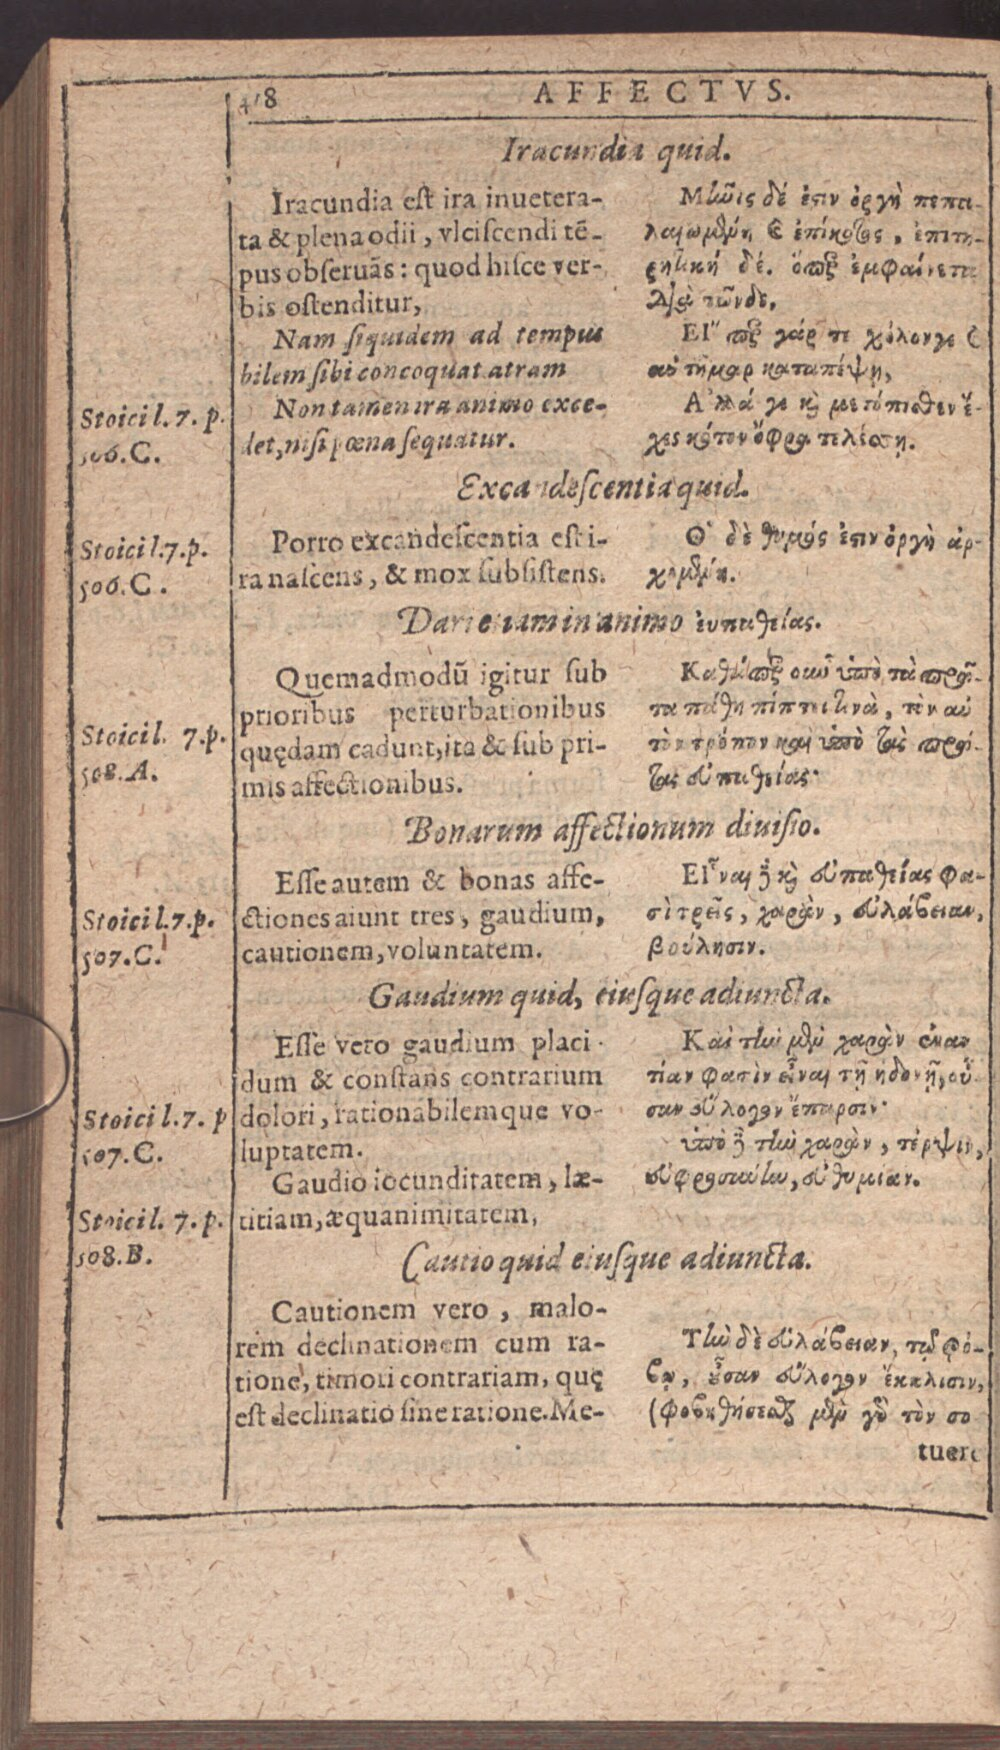 418
AFFECTVS.
Iracundia quid.
Iracundia est ira inuetera-
ta & plena odii, vlciscendi tẽ-
pus obseruãs: quod hisce ver-
bis ostenditur,
Nam siquidem ad tempus
bilem sibi concoquat atram
Non tamen ira animo exce-
det, nisi pœna sequatur.
Μῆνις δέ ἐστιν ὀργὴ πεπα-
λαιωμένη καὶ ἐπίκοτος, ἐπιτη-
ρητικὴ δέ. ὅπερ ἐμφαίνεται
διὰ τῶνδε,
Εἴπερ γάρ τε χόλον γε καὶ
αὐτῆμαρ καταπέψῃ,
Ἀλλά γε καὶ μετόπισθεν ἔ-
χει κότον ὄφρα τελέσσῃ.
Stoici l. 7. p.
506. C.
Excandescentia quid.
Porro excandescentia est i-
ra nascens, & mox subsistens.
Ὁ δὲ θυμός ἐστιν ὀργὴ ἀρ-
χομένη.
Stoici l. 7. p.
506. C.
Dari etiam in animo ἐυπαθείας.
Quemadmodũ igitur sub
prioribus perturbationibus
quędam cadunt, ita & sub pri-
mis affectionibus.
Καθάπερ οὖν ὑπὸ τὰ πρῶ-
τα πάθη πίπτει τινὰ, τὸν αὐ
τὸν τρόπον καὶ ὑπὸ τὰς πρώ-
τας εὐπαθείας·
Stoici l. 7. p.
508. A.
Bonarum affectionum diuisio.
Esse autem & bonas affe-
ctiones aiunt tres, gaudium,
cautionem, voluntatem.
Εἶναι δὲ καὶ εὐπαθείας φα-
σὶ τρεῖς, χαρὰν, εὐλάβειαν,
βούλησιν.
Stoici l. 7. p.
507. C.
Gaudium quid, eiusque adiuncta.
Esse vero gaudium placi-
dum & constans contrarium
dolori, rationabilemque vo-
luptatem.
Gaudio iocunditatem, læ-
titiam, æquanimitatem,
Καὶ τὴν μὲν χαρὰν ἐναν
τίαν φασὶν εἶναι τῇ ἡδονῇ, οὖ-
σαν εὔλογον ἔπαρσιν·
ὑπὸ δὲ τὴν χαρὰν, τέρψιν,
εὐφροσύνην, εὐθυμίαν.
Stoici l. 7. p
507. C.
Stoici l. 7. p.
508. B.
Cautio quid eiusque adiuncta.
Cautionem vero, malo-
rem declinationem cum ra-
tione, timori contrariam, quę
est declinatio sine ratione. Me-
Τὴν δὲ εὐλάβειαν, τῷ φό-
βῳ, οὖσαν εὔλογον ἔκκλισιν,
(φοβηθήσεσθαι μὲν γὸ τὸν σο
tuere